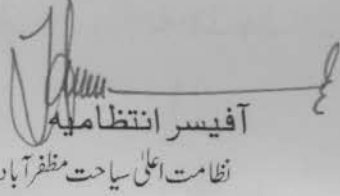 آفیسر انتظامیہ
نظامت اعلیٰ سیاحت مظفرآباد